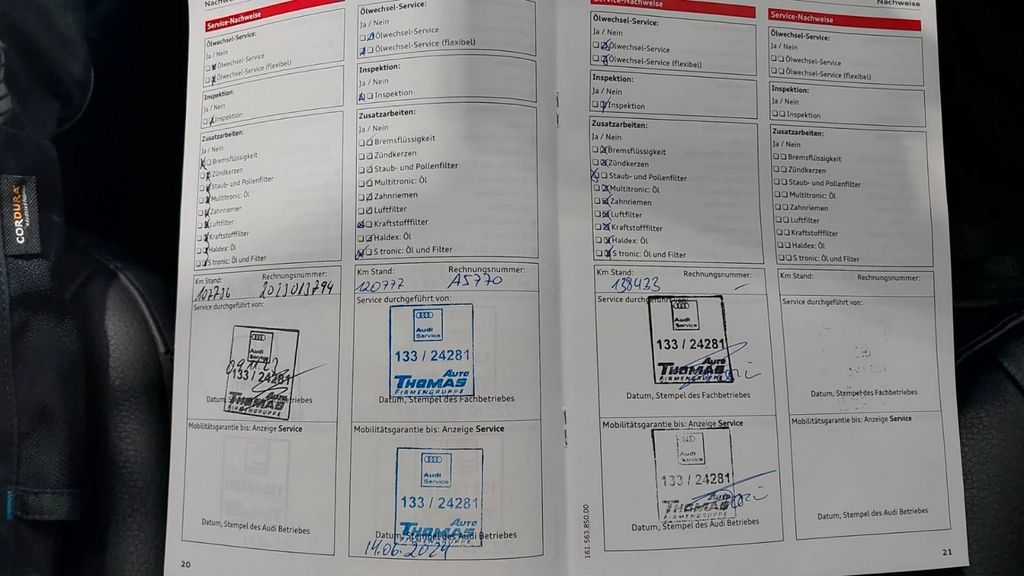 Nachweise
Service-Nachweise
Ölwechsel-Service:
Ja / Nein
Ölwechsel-Service
Ölwechsel-Service (flexibel)
Inspektion:
Ja / Nein
Inspektion
Zusatzarbeiten:
Ja / Nein
Bremsflüssigkeit
Zündkerzen
Staub- und Pollenfilter
Multitronic: Öl
Zahnriemen
Luftfilter
Kraftstofffilter
Haldex: Öl
S tronic: Öl und Filter
Km Stand: Rechnungsnummer:
102736
Service durchgeführt von:
Audi
Service
133 / 24281
Auto
THOMAS
FIRMENGRUPPE
Datum, Stempel des Fachbetriebes
Mobilitätsgarantie bis: Anzeige Service
Datum, Stempel des Audi Betriebes
20
Ölwechsel-Service:
Ja / Nein
Ölwechsel-Service
Ölwechsel-Service (flexibel)
Inspektion:
Ja / Nein
Inspektion
Zusatzarbeiten:
Ja / Nein
Bremsflüssigkeit
Zündkerzen
Staub- und Pollenfilter
Multitronic: Öl
Zahnriemen
Luftfilter
Kraftstofffilter
Haldex: Öl
S tronic: Öl und Filter
Km Stand: Rechnungsnummer:
120777 A5770
Service durchgeführt von:
Audi
Service
133 / 24281
Auto
THOMAS
FIRMENGRUPPE
Datum, Stempel des Fachbetriebes
Mobilitätsgarantie bis: Anzeige Service
Audi
Service
133 / 24281
Auto
THOMAS
FIRMENGRUPPE
Datum, Stempel des Audi Betriebes
14.06.2024
Service-Nachweise
Ölwechsel-Service:
Ja / Nein
Ölwechsel-Service
Ölwechsel-Service (flexibel)
Inspektion:
Ja / Nein
Inspektion
Zusatzarbeiten:
Ja / Nein
Bremsflüssigkeit
Zündkerzen
Staub- und Pollenfilter
Multitronic: Öl
Zahnriemen
Luftfilter
Kraftstofffilter
Haldex: Öl
S tronic: Öl und Filter
Km Stand: Rechnungsnummer:
138423
Service durchgeführt von:
Audi
Service
133 / 24281
Auto
THOMAS
FIRMENGRUPPE
Datum, Stempel des Fachbetriebes
Mobilitätsgarantie bis: Anzeige Service
Audi
Service
133 / 24281
Auto
THOMAS
Datum, Stempel des Audi Betriebes
161.563.850.00
Nachweise
Service-Nachweise
Ölwechsel-Service:
Ja / Nein
Ölwechsel-Service
Ölwechsel-Service (flexibel)
Inspektion:
Ja / Nein
Inspektion
Zusatzarbeiten:
Ja / Nein
Bremsflüssigkeit
Zündkerzen
Staub- und Pollenfilter
Multitronic: Öl
Zahnriemen
Luftfilter
Kraftstofffilter
Haldex: Öl
S tronic: Öl und Filter
Km Stand: Rechnungsnummer:
Service durchgeführt von:
Datum, Stempel des Fachbetriebes
Mobilitätsgarantie bis: Anzeige Service
Datum, Stempel des Audi Betriebes
21
CORDURA